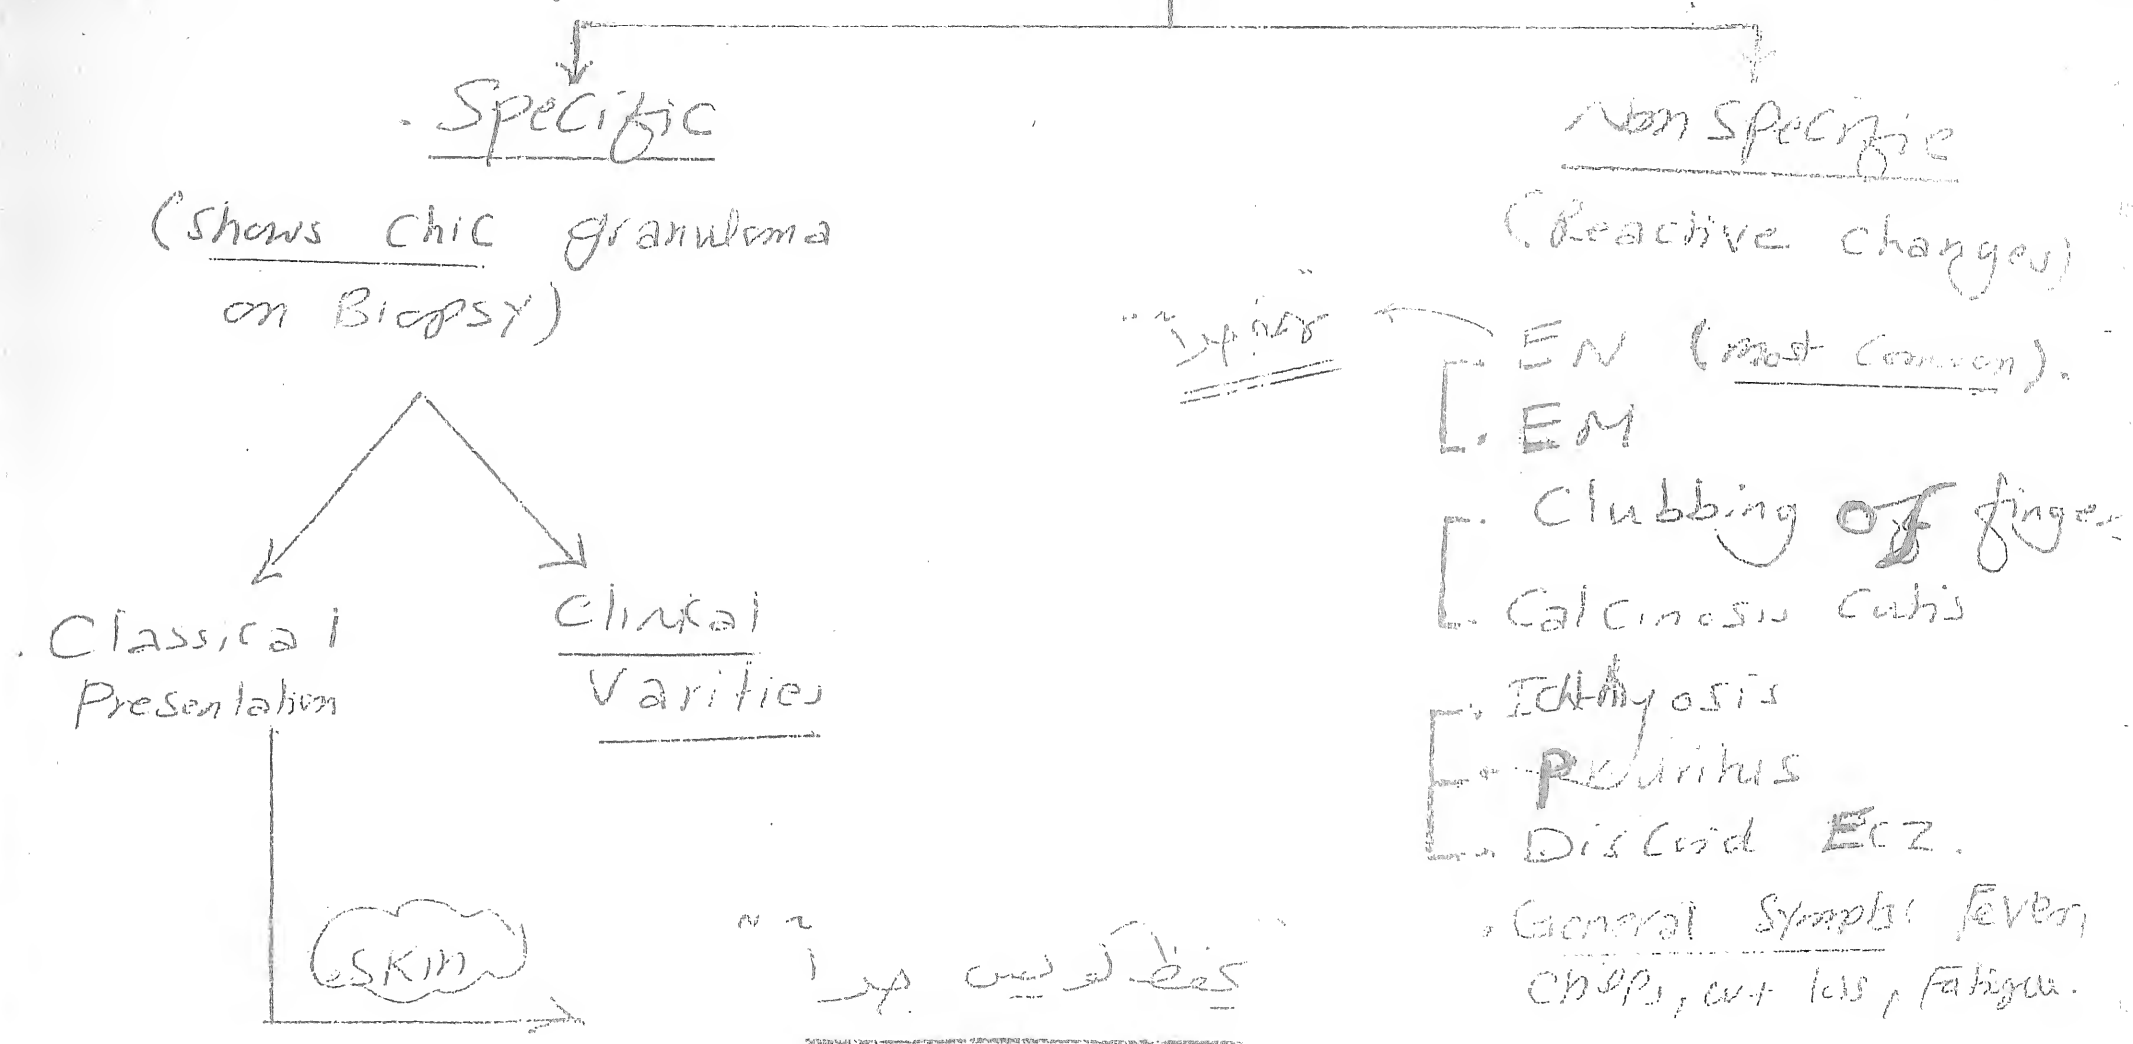 Specific
(shows chic granuloma
on Biopsy)
Classical
Presentation
Clinical
Varities
skin
Non Specific
(Reactive changes)
EN (most common).
EM
Clubbing of finger
Calcinosis Cutis
Ichthyosis
Pruritus
Discoid Ecz.
General Sympt: Fever,
wt loss, Fatigue.
تحفظ كويس جداً